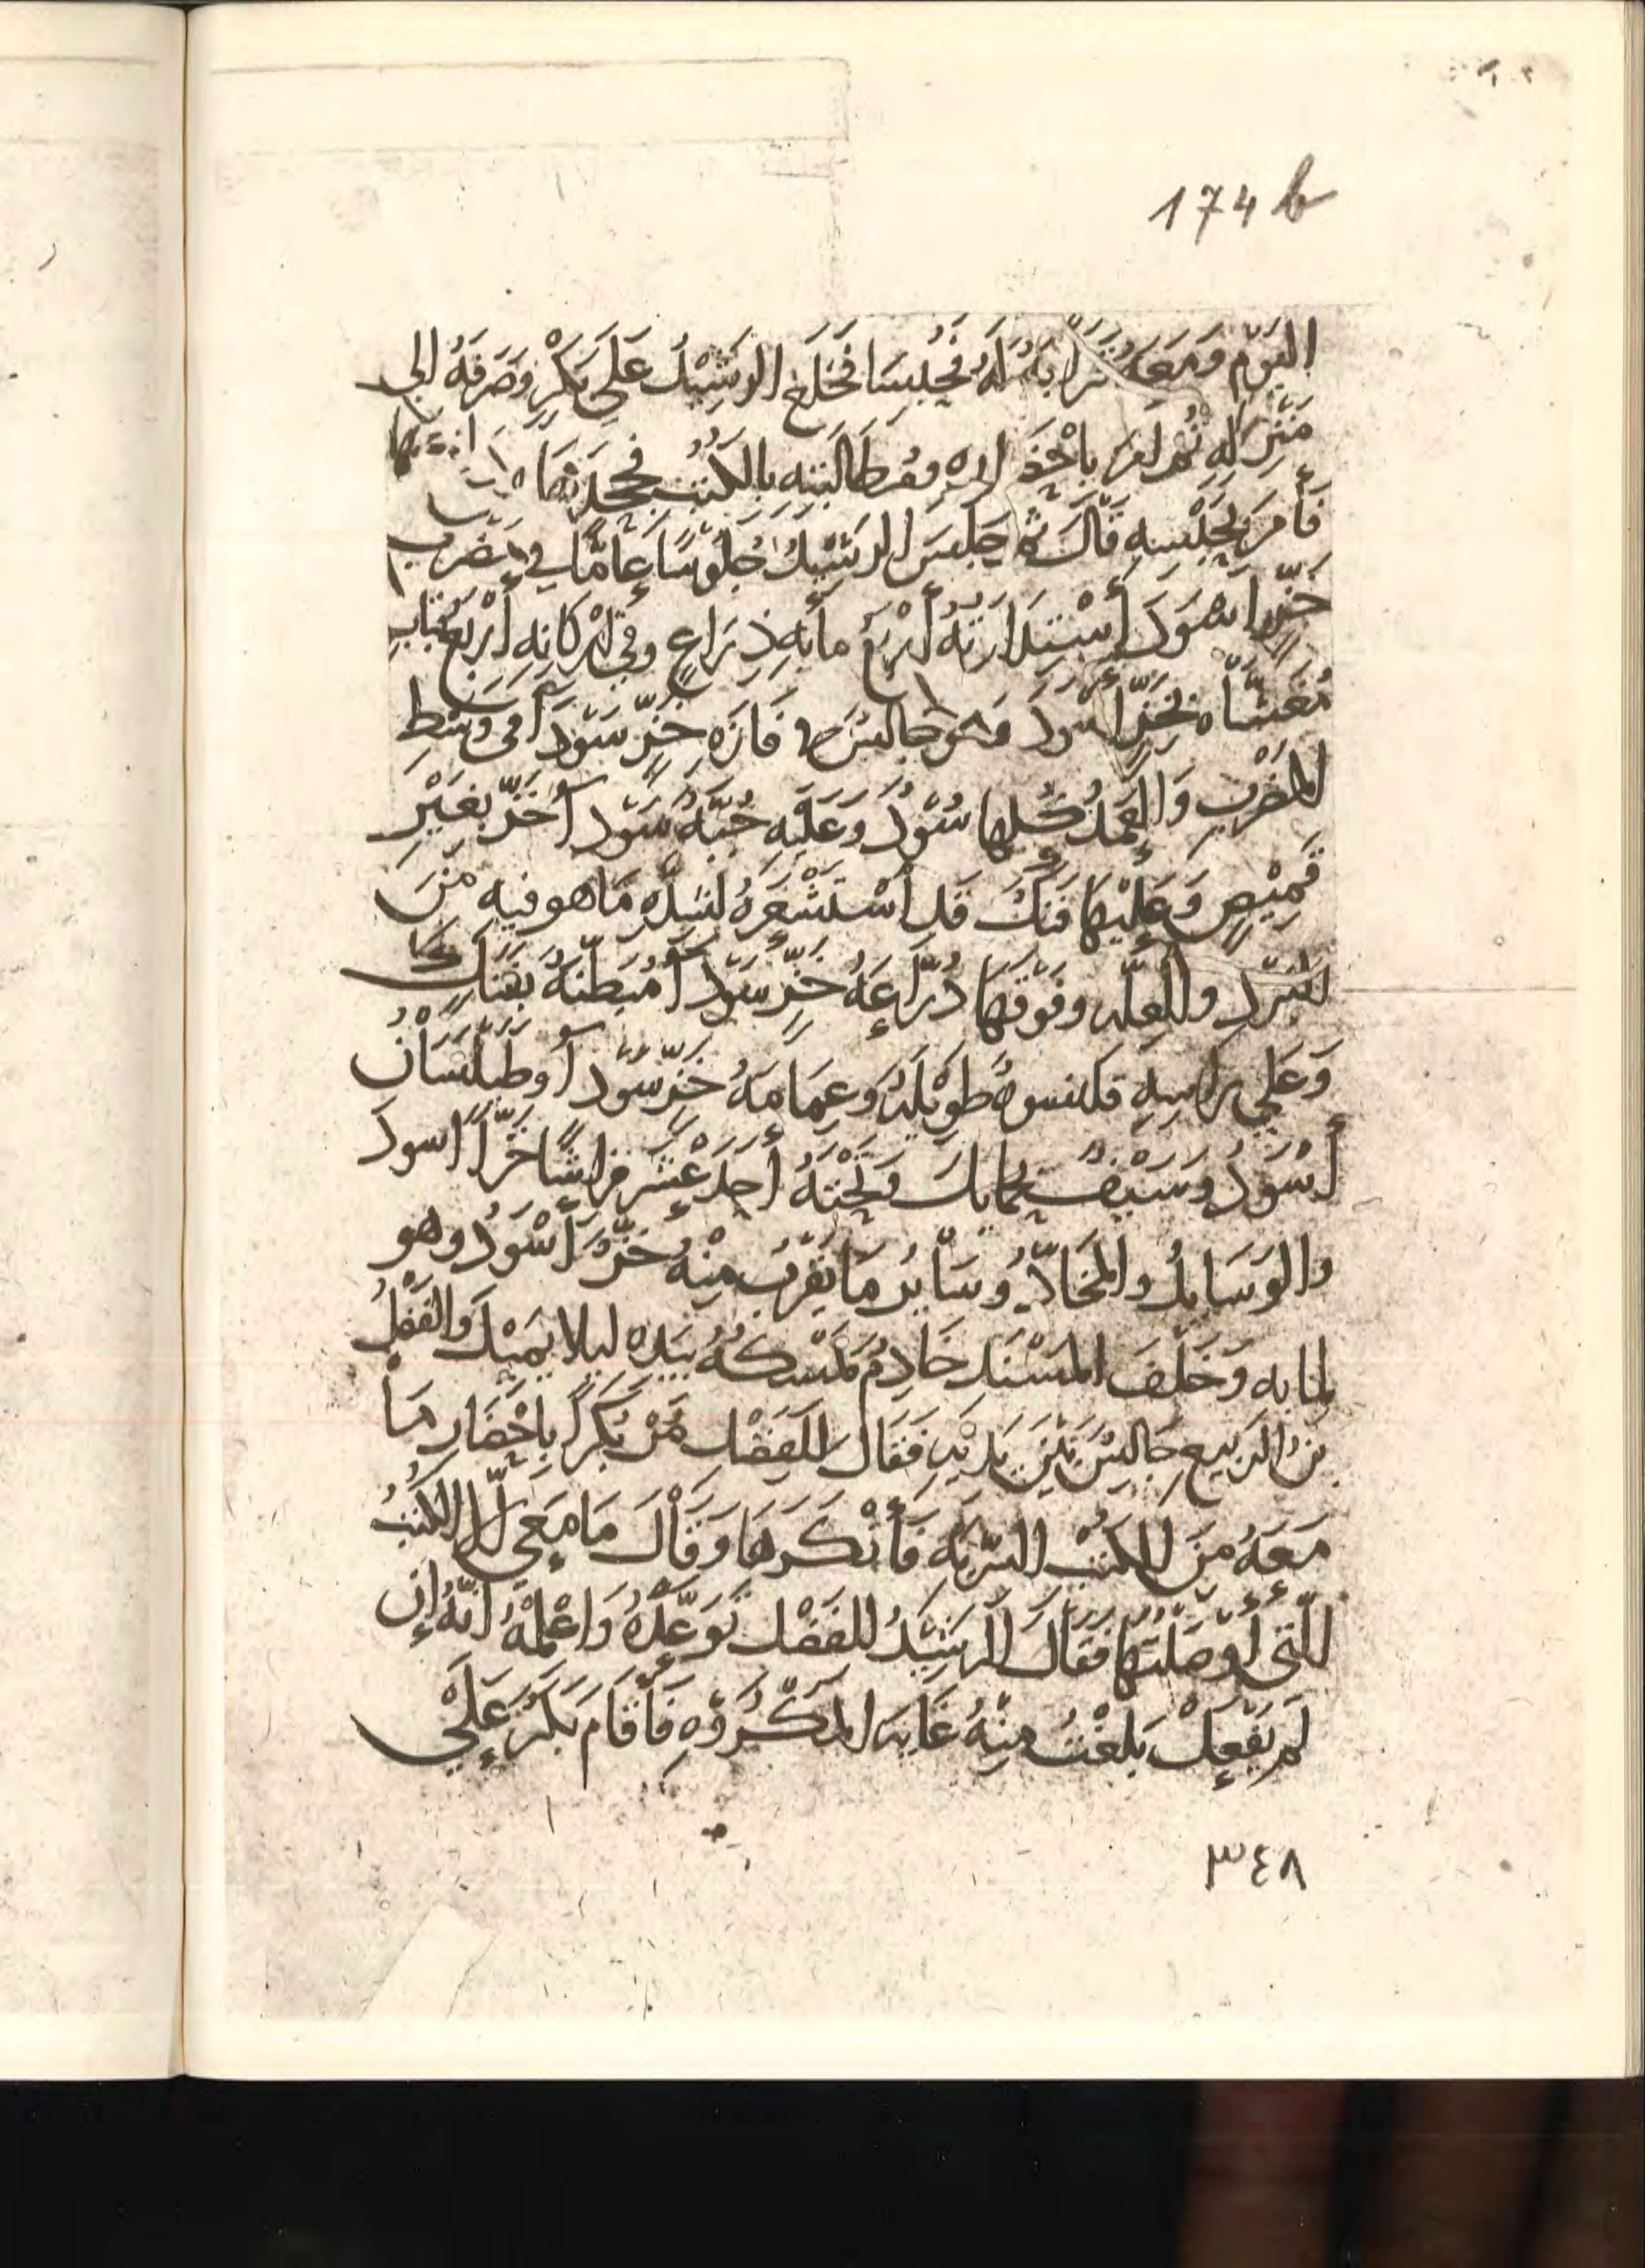 174 b
اليَوْم وَمَعَهُ قَرَابَةٌ لَهُ فَحُبِسَا فَخَلَعَ الرَشِيْدُ عَلَى بَكْرٍ وَصَرَفَهُ الى
مَنْزِلِهِ ثُم امَر بِاَخْذِهِ ومُطَالَبَتِهِ بِالكُتُبِ فَجَحَدَهَا
فَأَمَرَ بِحَبْسِهِ قَالَ ثُم جَلَسَ الرَشِيْدُ جُلُوسًا عَامًّا في مَضرَبِ
خَزٍّ اسْوَدَ اُسْتِدَارَتُهُ أَرْبَعُ مأيةِ ذِرَاعٍ وفي اَرْكَانِهِ أَرْبَعُ قبَابٍ
مُغَشَّاه بِخَزٍّ اسود وَهو جَالِسٌ في فَازَهِ خَزٍّ سَوْدَآ في وَسَطِ
المَضْرَبِ وَالعُمُدُ كُلها سُوْدٌ وَعَلَيْه جُبَّهُ سَوْدآ خَزٍّ بِغَيْرِ
قَمِيْصٍ وَعَلَيْهَا فَنَكٌ قَد اسْتَشْعَرَهُ لِشِدَّهِ مَا هو فيه مِنَ
البَرْدِ والعِلّه وفَوْقَهَا دُرَّاعَهُ خَزٍّ سَوْدآ مُبَطَّنَهُ بِفَنَكٍ
وَعَلى رَاسِهِ قلنسوهٌ طَوِيْلَهٌ وَعِمَامَهُ خَزٍّ سَوْدآ وطَيْلَسَانٌ
أَسْوَدُ وَسَيْفٌ بِحَمَايِلَ وَتَحْتَهُ أَحَدَ عَشَرَ فِرَاشًا خَزًّا اسودَ
والوَسَايِدُ والمَخَادُّ وَسَأيرُ مَا يَقْرُب مِنْهُ خَزٌّ أَسْوَدُ وهو
لما به وَخَلْفَ المَسْنَدِ خَادِمٌ يَمْسِكهُ بِيَدِهِ ليلا يَمِيْدَ وَالفَضْلُ
بنُ الرَبيع جَالِسٌ بَيْنَ يَدَيْهِ فَقَالَ لِلْفَضْلِ مُرْ بَكْرًا بِاحْضَارِ مَا
مَعَهُ مِنَ الكُتُبِ السِرِيَّه فَأَنْكَرَهَا وَقَالَ مَا مَعِي اِلَّا الكُتُبُ
الّتي أَوْصَلْتُهَا فَقَالَ الرَشِيْدُ لِلْفَضْلِ تَوَعَّدْهُ وَاعْلِمْهُ انَّهُ إِن
لَمْ يَفْعَلْ بَلَغْتُ مِنْهُ غَايَه المَكْرُوْهِ فَأَقَامَ بَكْرٌ عَلَى
٣٤٨